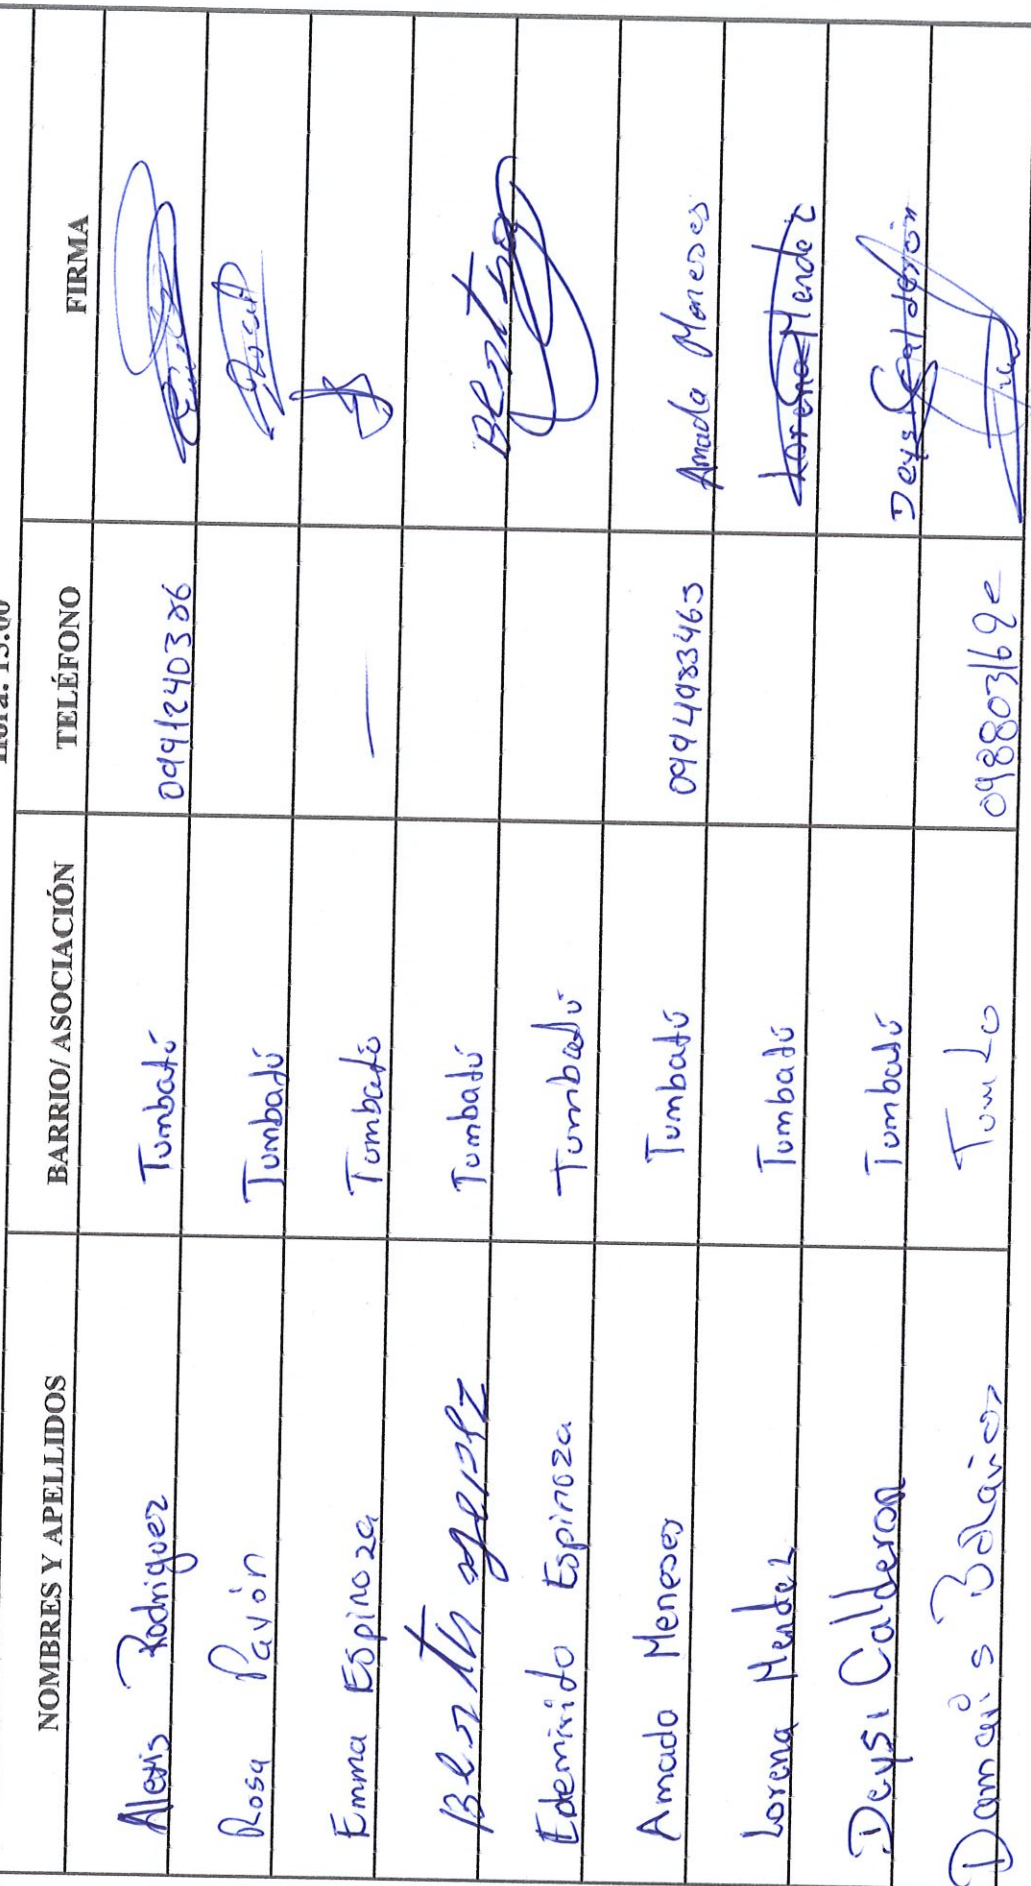 Hora: 15:00
NOMBRES Y APELLIDOS BARRIO/ ASOCIACIÓN TELÉFONO FIRMA
Alexis Rodriguez Tumbatú 0991240386
Rosa Pavón Tumbatú Rosa P
Emma Espinoza Tumbatú —
Tumbatú
Edemirido Espinoza Tumbatú
Amado Meneses Tumbatú 0994983463 Amada Meneses
Lorena Mendez Tumbatú Lorena Mendez
Deysi Calderon Tumbatú Deysi Calderón
Damaris Bolaños 0988031692